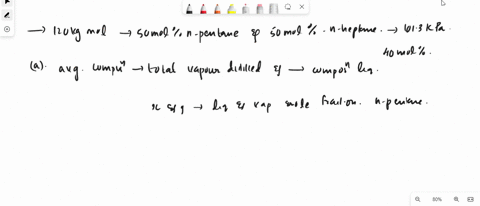 → 120kg mol → 50 mol % n-pentane & 50 mol %. n-heptane → 101.3 KPa.
40 mol %.
(a). avg. compnⁿ → total vapour distilled & → composⁿ liq.
x & y → liq & vap mole fraction. n-pentane.
80%